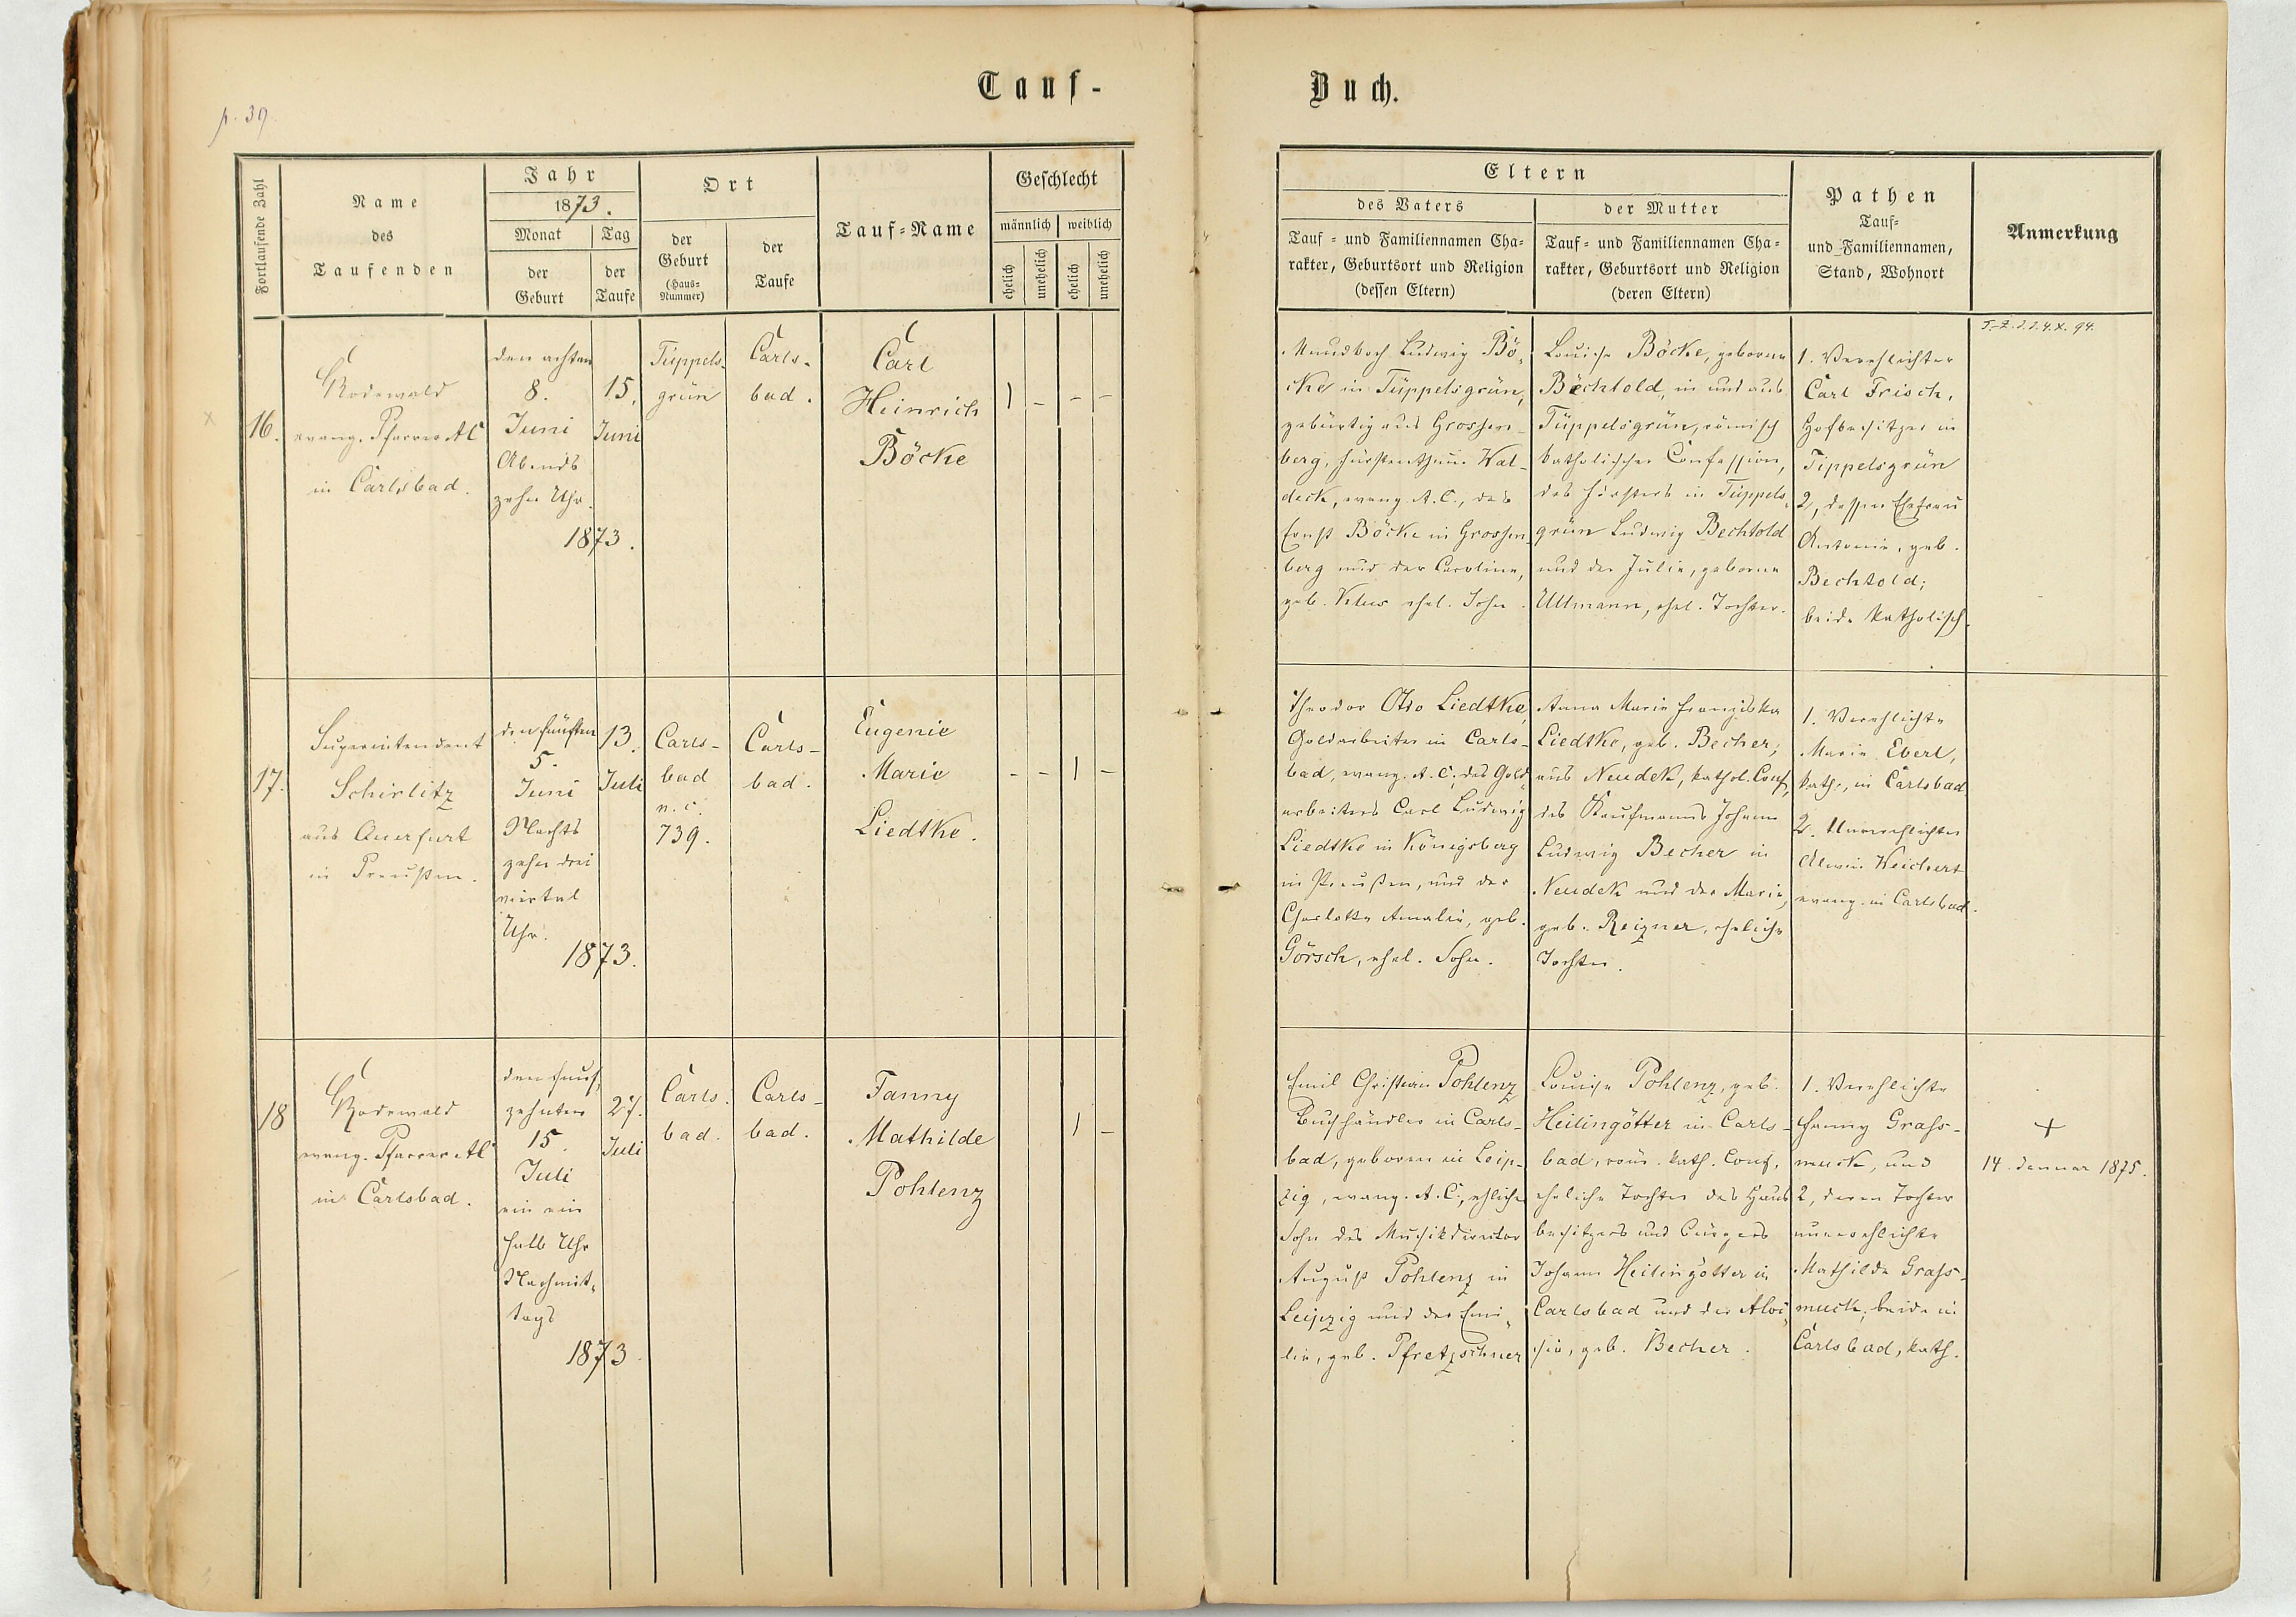 Tauf-
Buch.
p. 39.
Fortlaufende Zahl
Name
des
Taufenden
Jahr
1873.
Monat
Tag
der
Geburt
der
Taufe
Ort
der
Geburt
(Haus-
Nummer)
der
Taufe
Tauf-Name
Geschlecht
männlich
weiblich
ehelich
unehelich
ehelich
unehelich
Eltern
des Vaters
der Mutter
Tauf- und Familiennamen Cha-
rakter, Geburtsort und Religion
(dessen Eltern)
Tauf- und Familiennamen Cha-
rakter, Geburtsort und Religion
(deren Eltern)
Pathen
Tauf-
und Familiennamen,
Stand, Wohnort
Anmerkung
16.
Rodewald
evang. Pfarrer AC
in Carlsbad.
den achten
8.
Juni
Abends
zehn Uhr.
1873.
15.
Juni
Tüppels-
grün
Carls-
bad.
Carl
Heinrich
Böcke
1 - - -
Mundkoch Ludwig Bö-
cke in Tüppelsgrün,
gebürtig aus Grossen-
berg, Fürstenthum Wal-
deck, evang. A.C., des
Ernst Böcke in Grossen-
berg und der Caroline,
geb. ehel. Sohn.
Louise Böcke, geborne
Bechtold, in und aus
Tüppelsgrün, römisch
katholischer Confession,
des Försters in Tüppels-
grün Ludwig Bechtold
und der Julie, geborne
Ullmann, ehel. Tochter.
1. Verehlichter
Carl Frisch,
Hofbesitzer in
Tippelsgrün
2, dessen Ehefrau
Antonie, geb.
Bechtold;
beide katholisch.
T.-Z. 4.X.94.
17.
Superintendent
Schirlitz
aus Querfurt
in Preußen.
den fünften
5.
Juni
Nachts
zehn drei
viertel
Uhr.
1873.
13.
Juli
Carls-
bad
n.c.
739.
Carls-
bad.
Eugenie
Marie
Liedtke.
- - 1 -
Theodor Otto Liedtke,
Goldarbeiter in Carls-
bad, evang. A.C., des Gold-
arbeiters Carl Ludwig
Liedtke in Königsberg
in Preußen, und der
Charlotte Amalie, geb.
Görsch, ehel. Sohn.
Anna Marie Franziska
Liedtke, geb. Becher,
aus Neudek, kathol. Conf,
des Kaufmanns Johann
Ludwig Becher in
Neudek und der Marie,
geb. Reizner, eheliche
Tochter.
1. Verehlichte
Marie Eberl,
kath., in Carlsbad.
2. Unverehlichter
Alwin Weichert
evang. in Carlsbad.
18
Rodewald
evang. Pfarrer AC
in Carlsbad.
den fünf,
zehnten
15.
Juli
ein ein
halb Uhr
Nachmit-
tags
1873
27.
Juli
Carls-
bad.
Carls-
bad.
Fanny
Mathilde
Pohlenz
1 -
Emil Christian Pohlenz
Buchhändler in Carls-
bad, geboren in Leip-
zig, evang. A.C., ehliche
Sohn des Musikdirektor
August Pohlenz in
Leipzig und der Emi-
lie, geb. Pfretzschner
Louise Pohlenz, geb.
Heilingötter in Carls-
bad, röm. kath. Conf.,
eheliche Tochter des Haus
besitzers und Bürgers
Johann Heilingötter in
Carlsbad und der Aloi-
sie, geb. Becher.
1. Verehlichte
Fanny Grass-
muck, und
2, deren Tochter
unverehlichte
Mathilde Grass-
muck, beide in
Carlsbad, kath.
+
14. Januar 1875.